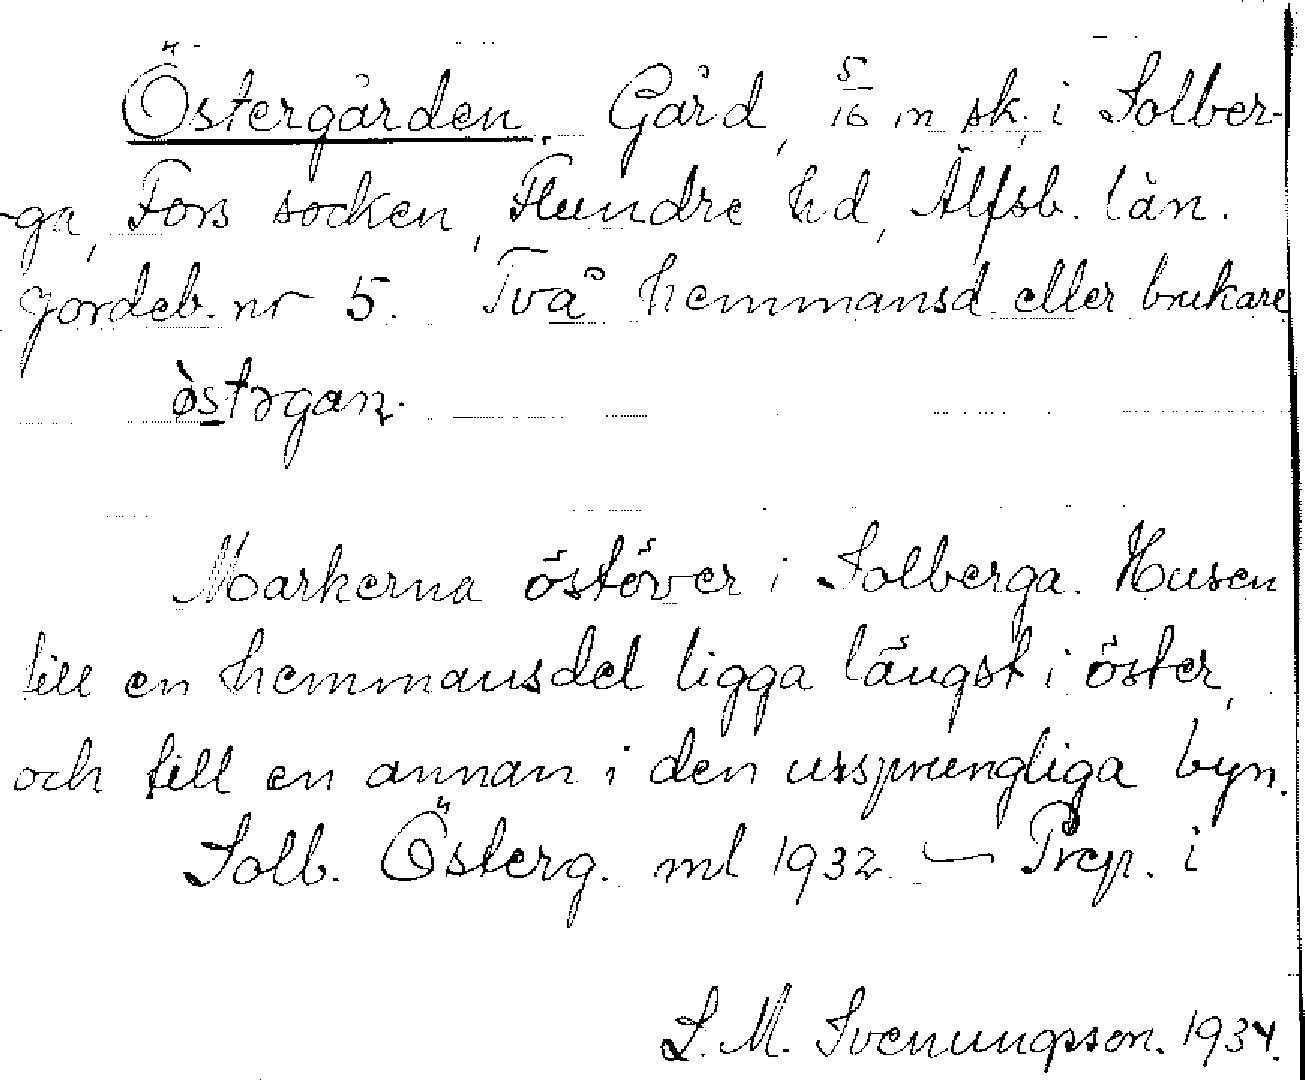 Östergården. Gård, 5/16 m sk. i Solber-
ga, Fors socken, Flundre hd, Älfsb. län.
Jordeb. nr 5. Två hemmansd. eller brukare
òstrgan.
Markerna östöver i Solberga. Husen
till en hemmansdel ligga längst i öster,
och till en annan i den ursprungliga byn.
Solb. Österg. ml 1932. — Prep. i
S. M. Svenungsson. 1934.